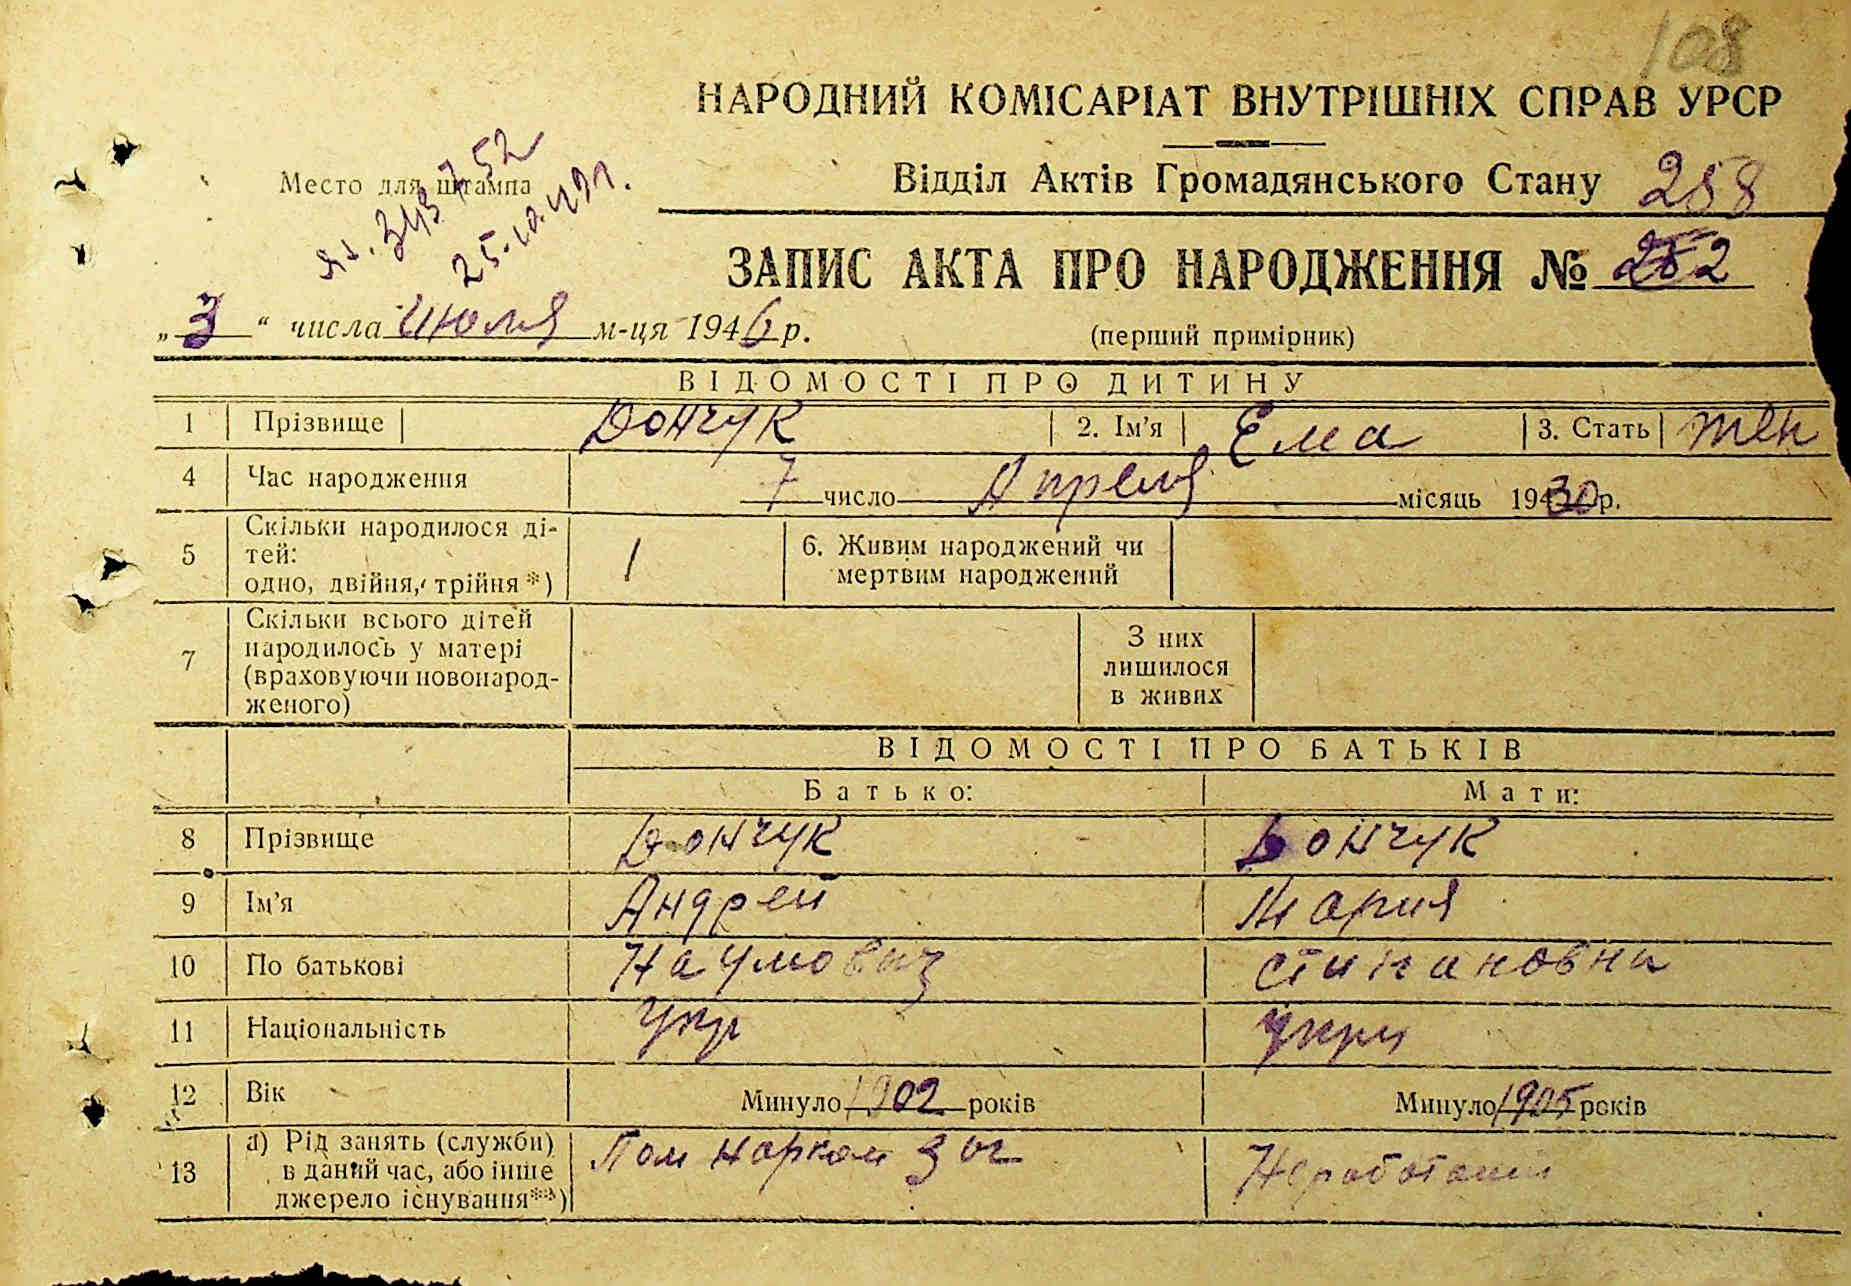 108
НАРОДНИЙ КОМІСАРІАТ ВНУТРІШНІХ СПРАВ УРСР
Место для штампа
Відділ Актів Громадянського Стану 258
25.10.49г.
ЗАПИС АКТА ПРО НАРОДЖЕННЯ № 252
„3“ числа Июля м-ця 1946 р.
(перший примірник)
ВІДОМОСТІ ПРО ДИТИНУ
1 Прізвище Дончук 2. Ім'я Ема 3. Стать жен
4 Час народження 7 число Апреля місяць 1930 р.
5 Скільки народилося ді-
тей:
одно, двійня, трійня*) 1 6. Живим народжений чи
мертвим народжений
7 Скільки всього дітей
народилось у матері
(враховуючи новонарод-
женого)
З них
лишилося
в живих
ВІДОМОСТІ ПРО БАТЬКІВ
Батько: Мати:
8 Прізвище Дончук Дончук
9 Ім'я Андрей Мария
10 По батькові Наумович Стипановна
11 Національність Укр Укри
12 Вік Минуло 1902 років Минуло 1905 років
13 а) Рід занять (служби)
в даний час, або інше
джерело існування**)
Пом Нарком